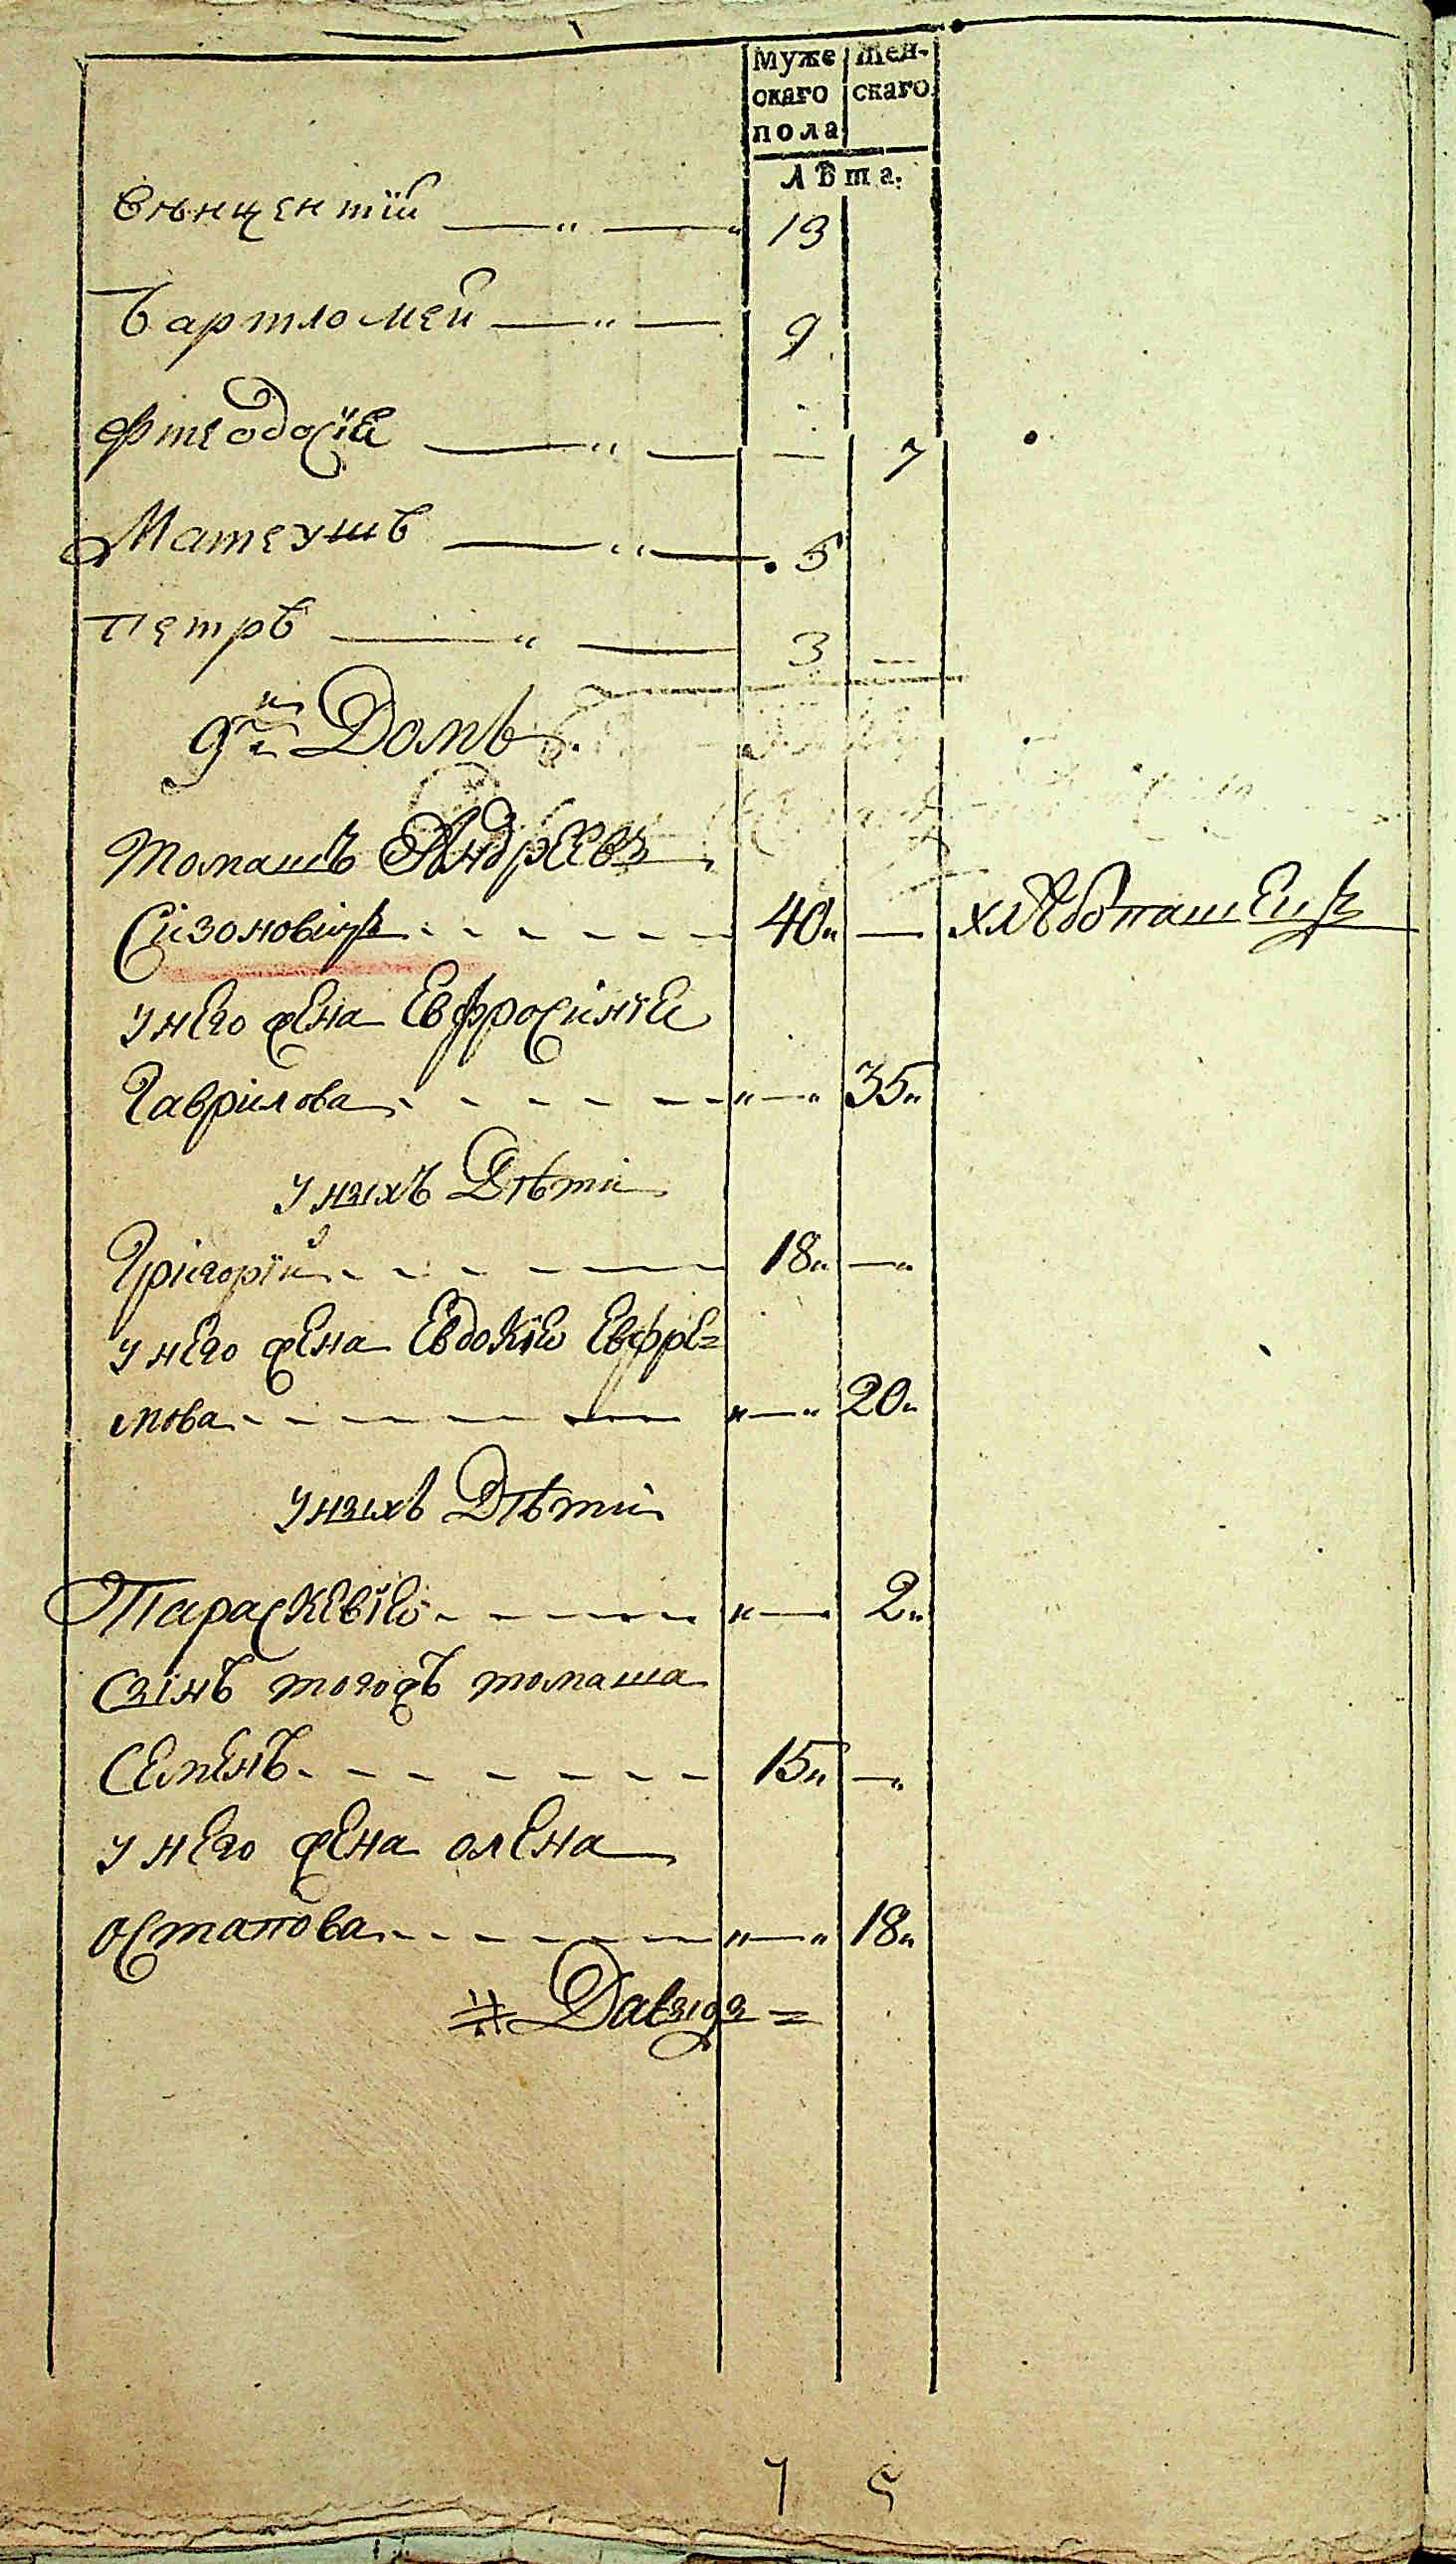 Муже Жен-
скаго скаго
пола
Лѣта.
Вѣнцентій — „ — „ 13
Бартломей — „ — 9
Фтеодосіе — „ — — 7
Матеушъ — „ — 5
Петръ — „ — 3 —
9й Домъ
Томашъ Андреевъ
Сизоновичъ - - - - - - 40„ — хлѣбопашецъ
у него жена Евфросиніе
Гаврилова - - - - - - „—„ 35„
у ныхъ Дѣти
Григорій - - - - — 18„ —„
у него жена Евдокіе Евфре=
мова - - - - - - „—„ 20„
у ныхъ Дѣти
Параскевіе - - - - - „— 2„
Сынъ тогожъ томаша
Семенъ - - - - - - - 15„ —„
у него жена олена
остапова - - - - - „—„ 18„
Давыдъ =
7 5